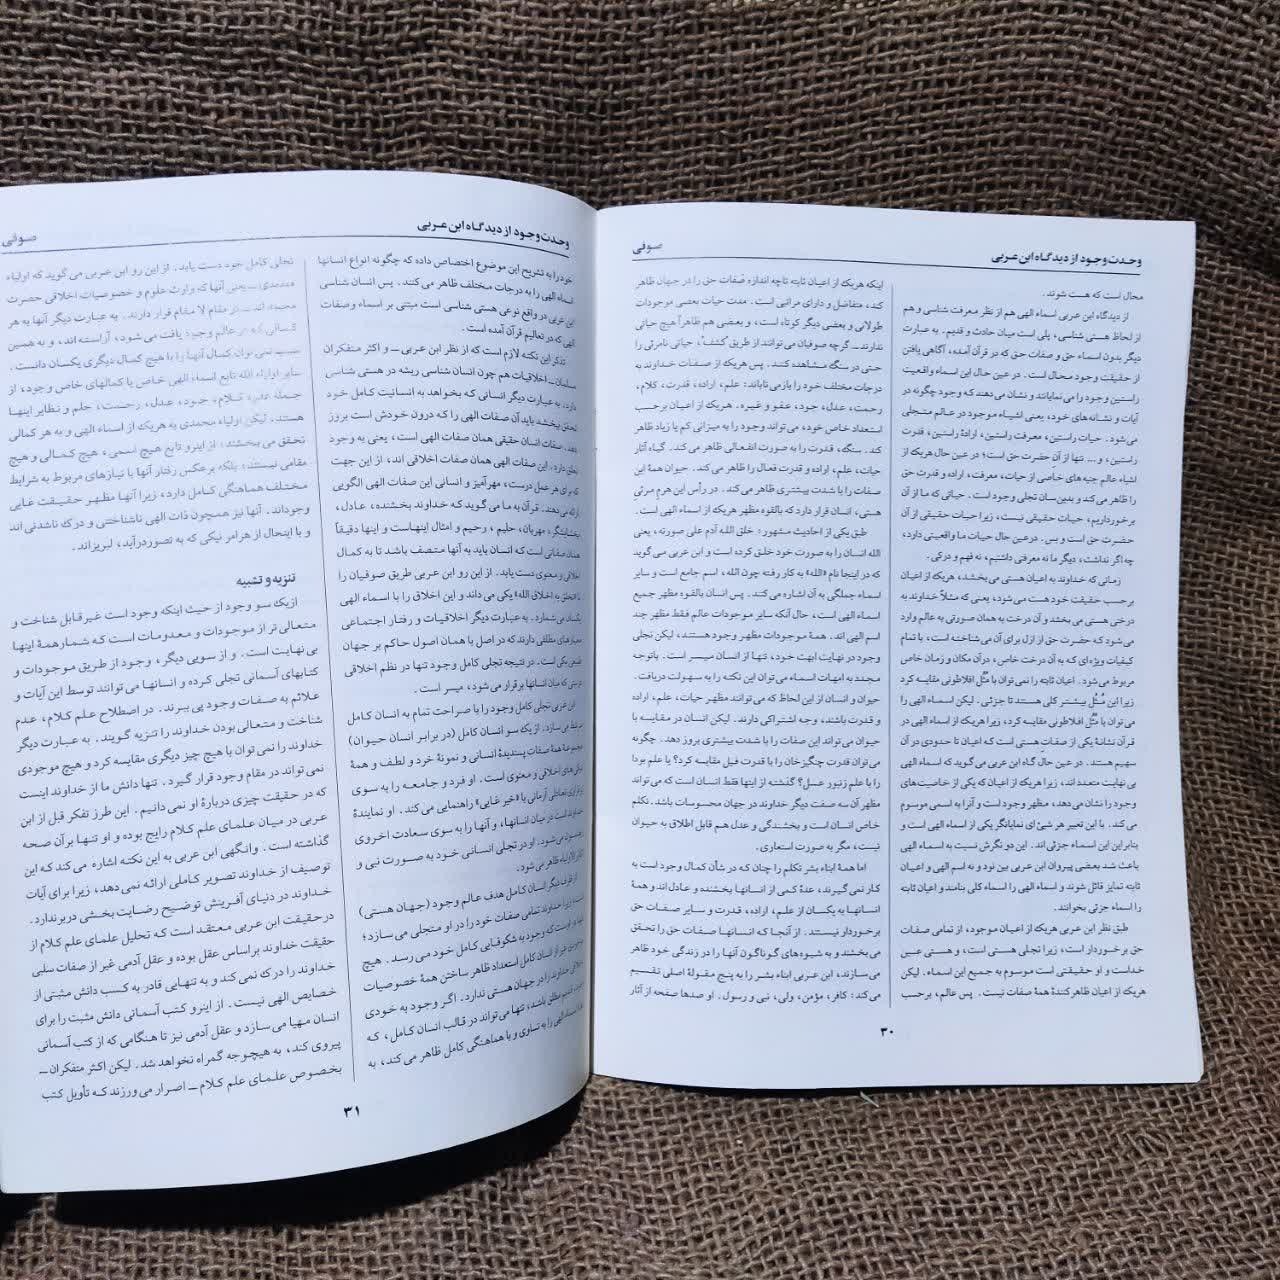 وحدت وجود از دیدگاه ابن عربی
صوفی
محال است که هست شوند.
از دیدگاه ابن عربی اسماء الهی هم از نظر معرفت شناسی و هم
از لحاظ هستی شناسی، پلی است میان حادث و قدیم. به عبارت
دیگر بدون اسماء حق و صفات حق که در قرآن آمده، آگاهی یافتن
از حقیقت وجود محال است. در عین حال این اسماء واقعیت
راستین وجود را می نمایانند و نشان می دهند که وجود چگونه در
آیات و نشانه های خود، یعنی اشیاء موجود در عالم متجلی
می شود. حیات راستین، معرفت راستین، ارادهٔ راستین، قدرت
راستین، و ... تنها از آنِ حضرت حق است؛ در عین حال هریک از
اشیاء عالم جبه های خاصی از حیات، معرفت، اراده و قدرت حق
را ظاهر می کند و بدین سان تجلی وجود است. حیاتی که ما از آن
برخورداریم، حیات حقیقی نیست، زیرا حیات حقیقی از آن
حضرت حق است و بس. در عین حال حیات ما واقعیتی دارد،
چه اگر نداشت، دیگر ما نه معرفتی داشتیم، نه فهم و درکی.
زمانی که خداوند به اعیان هستی می بخشد، هریک از اعیان
برحسب حقیقت خود هست می شود، یعنی که مثلاً خداوند به
درختی هستی می بخشد و آن درخت به همان صورتی به عالم وارد
می شود که حضرت حق از ازل برای آن می شناخته است، با تمام
کیفیات ویژه ای که به آن درخت خاص، در آن مکان و زمان خاص
مربوط می شود. اعیان ثابته را نمی توان با مُثُل افلاطونی مقایسه کرد
زیرا این مُثُل بیشتر کلی هستند تا جزئی. لیکن اسماء الهی را
می توان با مُثُل افلاطونی مقایسه کرد، زیرا هریک از اسماء الهی در
قرآن نشانهٔ یکی از صفاتِ هستی است که اعیان تا حدودی در آن
سهیم هستند. در عین حال گاه ابن عربی می گوید که اسماء الهی
بی نهایت متعددند، زیرا هریک از اعیان که یکی از خاصیت های
وجود را نشان می دهد، مظهر وجود است و آنرا به اسمی موسوم
می کند. با این تعبیر هر شیئ ای نمایانگر یکی از اسماء الهی است و
بنابراین این اسماء جزئی اند. این دو نگرش نسبت به اسماء الهی
باعث شد بعضی پیروان ابن عربی بین نود و نه اسم الهی و اعیان
ثابته تمایز قائل شوند و اسماء الهی را اسماء کلی بنامند و اعیان ثابتهٔ
را اسماء جزئی بخوانند.
طبق نظر ابن عربی هریک از اعیان موجود، از تمامی صفات
حق برخوردار است، زیرا تجلی هستی است، و هستی عین
خداست و او حقیقتی است موسوم به جمیع این اسماء. لیکن
هریک از اعیان ظاهرکنندهٔ همهٔ صفات نیست. پس عالم، برحسب
اینکه هریک از اعیان ثابته تاچه اندازه صفات حق را ظاهر
کند، متفاضل و دارای مراتبی است. مدت حیات بعضی موجودات
طولانی و بعضی دیگر کوتاه است، و بعضی هم ظاهراً هیچ حیاتی
ندارند ـ گرچه صوفیان می توانند از طریق 'کشف'، حیاتی نامرئی را
حتی در سنگ مشاهده کنند. پس هریک از صفات خداوند به
درجات مختلف خود را باز می تاباند: علم، اراده، قدرت، کلام،
رحمت، عدل، جود، عفو و غیره. هریک از اعیان برحسب
استعداد خاص خود، می تواند وجود را به میزانی کم یا زیاد ظاهر
کند. سنگ، قدرت را به صورت انفعالی ظاهر می کند. گیاه آثار
حیات، علم، اراده و قدرت فعال را ظاهر می کند. حیوان همهٔ این
صفات را با شدت بیشتری ظاهر می کند. در رأس این هرم مرئی
هستی، انسان قرار دارد که بالقوه مظهر هریک از اسماء الهی است.
طبق یکی از احادیث مشهور: خلق الله آدم علی صورته، یعنی
الله انسان را به صورت خود خلق کرده است و ابن عربی می گوید
که در اینجا نام «الله» به کار رفته چون الله، اسم جامع است و سایر
اسماء جملگی به آن اشاره می کند. پس انسان بالقوه مظهر جمیع
اسماء الهی است، حال آنکه سایر موجودات عالم فقط مظهر چند
اسم الهی اند. همهٔ موجودات مظهر وجود هستند، لیکن تجلی
وجود در نهایت ابهت خود، تنها از انسان میسر است. باتوجه
مجدد به امهات اسماء می توان این نکته را به سهولت دریافت.
حیوان و انسان از این لحاظ که می توانند مظهر حیات، علم، اراده
و قدرت باشند، وجه اشتراکی دارند. لیکن انسان در مقایسه با
حیوان می تواند این صفات را با شدت بیشتری بروز دهد. چگونه
می توان قدرت چنگیزخان را با قدرت فیل مقایسه کرد؟ یا علم بودا
را با علم زنبور عسل؟ گذشته از اینها فقط انسان است که می تواند
مظهر آن سه صفت دیگر خداوند در جهان محسوسات باشد. تکلم
خاص انسان است و بخشندگی و عدل هم قابل اطلاق به حیوان
نیست، مگر به صورت استعاری.
اما همهٔ ابناء بشر تکلم را چنان که در شأن کمال وجود است به
کار نمی گیرند، عدهٔ کمی از انسانها بخشنده و عادل اند و همهٔ
انسانها به یکسان از علم، اراده، قدرت و سایر صفات حق
برخوردار نیستند. از آنجا که انسانها صفات حق را تحقق
می بخشند و به شیوه های گوناگون آنها را در زندگی خود ظاهر
می سازند، ابن عربی ابناء بشر را به پنج مقولهٔ اصلی تقسیم
می کند: کافر، مؤمن، ولی، نبی و رسول. او صدها صفحه از آثار
۳۰
وحدت وجود از دیدگاه ابن عربی
صوفی
خود را به تشریح این موضوع اختصاص داده که چگونه انواع انسانها
اسماء الهی را به درجات مختلف ظاهر می کنند. پس انسان شناسی
ابن عربی در واقع نوعی هستی شناسی است مبتنی بر اسماء وصفات
الهی که در تعالیم قرآن آمده است.
تذکر این نکته لازم است که از نظر ابن عربی ـ و اکثر متفکران
مسلمان ـ اخلاقیات هم چون انسان شناسی ریشه در هستی شناسی
دارد. به عبارت دیگر انسانی که بخواهد به انسانیت کامل خود
تحقق بخشد باید آن صفات الهی را که درون خودش است بروز
دهد. صفات انسان حقیقی همان صفات الهی است، یعنی به وجود
تعلق دارد. این صفات الهی همان صفات اخلاقی اند، از این جهت
که برای هر عمل درست، مهرآمیز و انسانی این صفات الهی الگویی
ارائه می دهند. قرآن به ما می گوید که خداوند بخشنده، عادل،
بخشایشگر، مهربان، حلیم، رحیم و امثال اینهاست و اینها دقیقاً
همان صفاتی است که انسان باید به آنها متصف باشد تا به کمال
اخلاقی و معنوی دست یابد. از این رو ابن عربی طریق صوفیان را
«تخلق به اخلاق الله» یکی می داند و این اخلاق را با اسماء الهی
یکسان می شمارد. به عبارت دیگر اخلاقیات و رفتار اجتماعی
معیارهای مطلقی دارند که در اصل با همان اصول حاکم بر جهان
طبیعی یکی است. در نتیجه تجلی کامل وجود تنها در نظم اخلاقی
درستی که میان انسانها برقرار می شود، میسر است.
ابن عربی تجلی کامل وجود را با صراحت تمام به انسان کامل
مرتبط می سازد. از یک سو انسان کامل (در برابر انسان حیوان)
مجموعهٔ همهٔ صفات پسندیدهٔ انسانی و نمونهٔ خرد و لطف و همهٔ
نیکی های اخلاقی و معنوی است. او فرد و جامعه را به سوی
برقراری تعادلی آرمانی با «خیر غایی» راهنمایی می کند. او نمایندهٔ
خداوند است در میان انسانها، و آنها را به سوی سعادت اخروی
رهنمون می شود. او در تجلی انسانی خود به صورت نبی و
اکابر اولیاء ظاهر می شود.
از طرف دیگر انسان کامل هدف عالم وجود (جهان هستی)
است، زیرا خداوند تمامی صفات خود را در او متجلی می سازد؛
تنها در اوست که وجود به شکوفایی کامل خود می رسد. هیچ
موجودی غیر از انسان کامل استعداد ظاهر ساختن همهٔ خصوصیات
اخلاقی خداوند را در جهان هستی ندارد. اگر وجود به خودی
خود قدیم مطلق باشد، تنها می تواند در قالب انسان کامل، که
همهٔ اسماء الهی را به تساوی و با هماهنگی کامل ظاهر می کند، به
تجلی کامل خود دست یابد. از این رو ابن عربی می گوید که اولیاء
محمدی ـ یعنی آنها که وارث علوم و خصوصیات اخلاقی حضرت
محمدند ـ در مقام لا مقام قرار دارند. به عبارت دیگر آنها به هر
کمالی که در عالم وجود یافت می شود، آراسته اند، و به همین
سبب نمی توان کمال آنها را با هیچ کمال دیگری یکسان دانست.
سایر اولیاء الله تابع اسماء الهی خاص یا کمالهای خاص وجود، از
جمله علم، کلام، جود، عدل، رحمت، حلم و نظایر اینها
هستند. لیکن اولیاء محمدی به هریک از اسماء الهی و به هر کمالی
تحقق می بخشند؛ از اینرو تابع هیچ اسمی، هیچ کمالی و هیچ
مقامی نیستند، بلکه برعکس رفتار آنها با نیازهای مربوط به شرایط
مختلف هماهنگی کامل دارد، زیرا آنها مظهر حقیقت غایی
وجوداند. آنها نیز همچون ذات الهی ناشناختنی و درک ناشدنی اند
و با اینحال از هرامر نیکی که به تصور درآید، لبریزاند.
تنزیه و تشبیه
از یک سو وجود از حیث اینکه وجود است غیر قابل شناخت و
متعالی تر از موجودات و معدومات است که شمار همهٔ اینها
بی نهایت است. و از سویی دیگر، وجود از طریق موجودات و
کتابهای آسمانی تجلی کرده و انسانها می توانند توسط این آیات و
علائم به صفات وجود پی ببرند. در اصطلاح علم کلام، عدم
شناخت و متعالی بودن خداوند را تنزیه گویند. به عبارت دیگر
خداوند را نمی توان با هیچ چیز دیگری مقایسه کرد و هیچ موجودی
نمی تواند در مقام وجود قرار گیرد. تنها دانش ما از خداوند اینست
که در حقیقت چیزی دربارهٔ او نمی دانیم. این طرز تفکر قبل از ابن
عربی در میان علمای علم کلام رایج بوده و او تنها بر آن صحه
گذاشته است. وانگهی ابن عربی به این نکته اشاره می کند که این
توصیف از خداوند تصویر کاملی ارائه نمی دهد، زیرا برای آیات
خداوند در دنیای آفرینش توضیح رضایت بخشی دربر ندارد.
درحقیقت ابن عربی معتقد است که تحلیل علمای علم کلام از
حقیقت خداوند براساس عقل بوده و عقل آدمی غیر از صفات سلبی
خداوند را درک نمی کند و به تنهایی قادر به کسب دانش مثبتی از
خصایص الهی نیست. از اینرو کتب آسمانی دانش مثبت را برای
انسان مهیا می سازد و عقل آدمی نیز تا هنگامی که از کتب آسمانی
پیروی کند، به هیچوجه گمراه نخواهد شد. لیکن اکثر متفکران ـ
بخصوص علمای علم کلام ـ اصرار می ورزند که تأویل کتب
۳۱